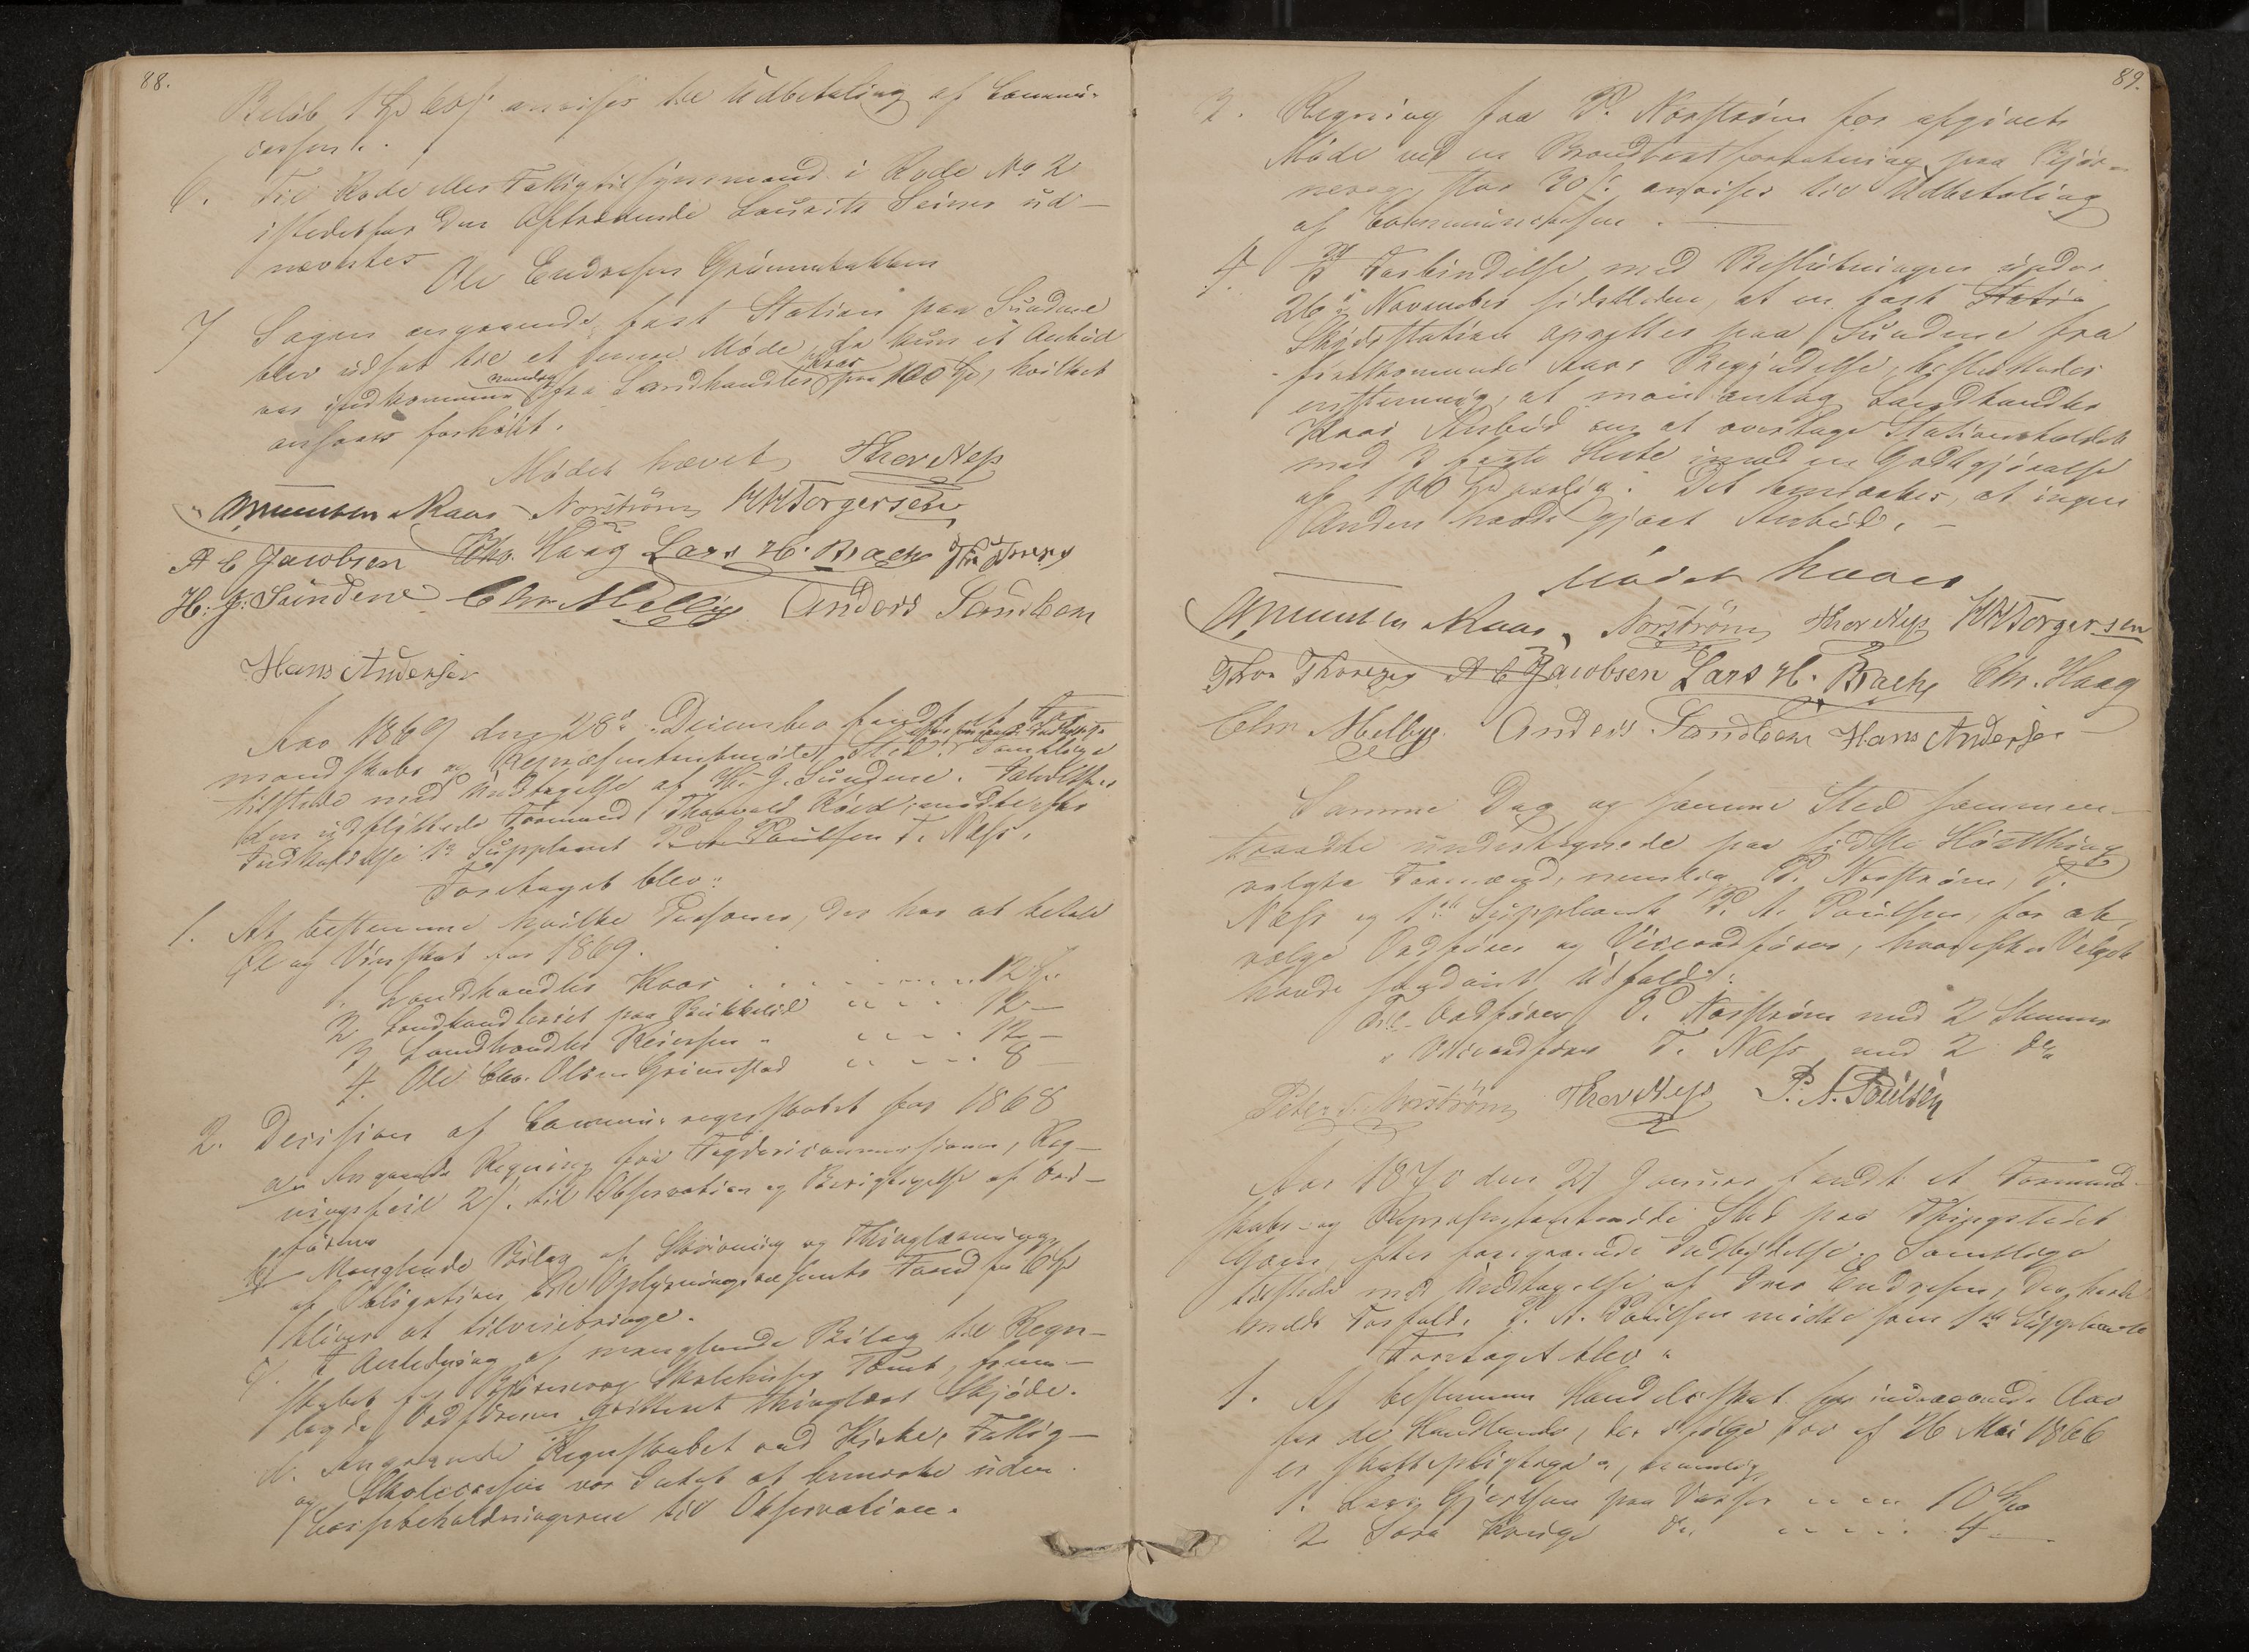 88.
Beløb 1 Spd anvises til Udbetaling af Commu-
cassen.
6. Til Rode eller Fattigtilsynsmand i Rode No 2
istedetfor den Aftrædende Laurits Seines ud-
nævntes
Ole Endresen Grønnebakken
7 Sagen angaaende fast Station paa Sundene
blev udsat til et senere Møde, da kun et Anbud
var indkommen nemlig fra Landhandler Kaas paa 100 Spd, hvilket
ansaaes forhøit.
Mødet hævet Thor Næss
Amuntsen Kaas Norstrøm Torgersen
A C Jacobsen Chr. Haag Lars H. Brække
H: J: Sundene Chr Melbye Anders Sandbem
Hans Andersen
Aar 1869 den 28de December holdtes et For-
mandskabs og Repræsentantmøde, Sted. efter foregaaende Indbydelse Samtlige
tilstede med Undtagelse af H. J. Sundene. Istedetfor
den udflyttede Formand Thorvald mødte efter
Indkaldelse 1ste Suppleant P. A. Poulsen T. Næss.
Foretaget blev:
1. At bestemme hvilke Personer, der har at betale
Øl og Vinskat for 1869.
1. Landhandler Kaas . . . . . . 12 .
2 Landhandleriet paa . . . 12 —
3 Landhandler Reiersen . . . . 12 —
4. Ole Chr. Olsen Grimstad . . . . 8 —
2. Decision af Commune regnskabet for 1868
a. Angaaende Regning fra Veqdericommissionen, Reg-
ningsfeil 2 s. til Observation og Berigtigelse af Ord-
føreren
b. Manglende Bilag af Skrivning og Thinglæsning
af Obligation til Oplysningsvæsenets Fond for Spd
bliver at tilveiebringe.
c. I Anledning af manglende Bilag til Regn-
skabet for Bjørnevaag Skolehuses Tomt, frem-
lagde Ordføreren qvitteret thinglæst Skjøde.
d. Angaaende Regnskabet ved Kirke, Fattig-
og Skolecassen var Intet at bemærke uden
Cassebeholdningerne til Observation.
89.
3. Regning fra P. Norstrøm for afgivet
Møde ved en Brandtaxtforretning paa Bjør-
nevaag, stor 30 s. anvises til Udbetaling
af Communecassen.
4. I Forbindelse med Beslutningen under
26de November sidstleden, at en fast Statio
Skydsstation oprettes paa Sundene fra
førstkommende Aars Begyndelse, besluttedes
enstemmig, at man antog Landhandler
Kaas Anbud om at overtage Stationsholdet
med 3 faste Heste imod en Godtgjørelse
af 100 Spd aarlig. Det bemærkes, at ingen
Anden havde gjort Anbud. —
Mødet hævet
Amuntsen Kaas, Norstrøm Thor Næss Torgersen
Thor Thoresen A C Jacobsen Lars H. Brække Chr. Haag
Chr Melbye. Anders Sandbem Hans Andersen
Samme Dag og samme Sted sammen-
traadte undertegnede paa sidste Høstthing
valgte Formænd, nemlig P. Norstrøm, T.
Næss og 1ste Suppleant P. A. Poulsen, for at
vælge Ordfører og Viceordfører, hvorefter Valget
havde saadant Udfald:
Til Ordfører P. Norstrøm med 2 Stemmer
" Viceordfører T. Næss med 2 do
Peter Norstrøm Thor Næss P. A. Poulsen
Aar 1870 den 21 Januar holdt et Formand-
skabs- og Repræsentantmøde Sted paa Thingstedet
efter foregaaende Indbydelse. Samtlige
tilstede med Undtagelse af Iver Endresen, der havde
meldt Forfald. P. A. Poulsen mødte som 1ste Suppleant
Foretaget blev:
1. At bestemme Handelsskat for indeværende Aar
for de Handlende, der ifølge Lov af 26 Mai 1866
er skattepligtige, nemlig
1. Lars Gjertsen paa 10 Spd
2 Sara do. 4 —